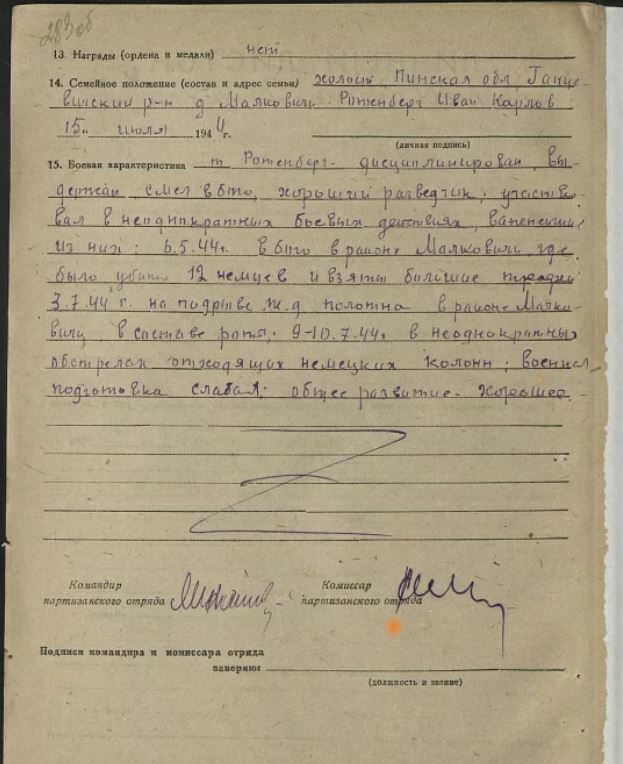 283об
13. Награды (ордена и медали) нет
14. Семейное положение (состав и адрес семьи) холост, Пинская обл, Ганце-
вичский р-н д Малковичи Ротенберг Иван Карлов
15 июля 1944г.
(личная подпись)
15. Боевая характеристика т Ротенберг- дисциплинирован, вы-
держан смел в бою, хороший разведчик; участво-
вал в неоднократных боевых действиях,
из них: 6.5.44г. в бою в районе Малковичи, где
было убито 12 немцев и взяты большие трофеи
3.7.44 г. на подрыве ж.д полотна в районе Малко-
вичи, в составе роты; 9-10.7.44г. в неоднократных
обстрелах отходящих немецких колонн; военная
подготовка слабая; общее развитие- хорошее-
Командир
партизанского отряда
Комиссар
партизанского отряда
Подписи командира и комиссара отряда
заверяю:
(должность и звание)